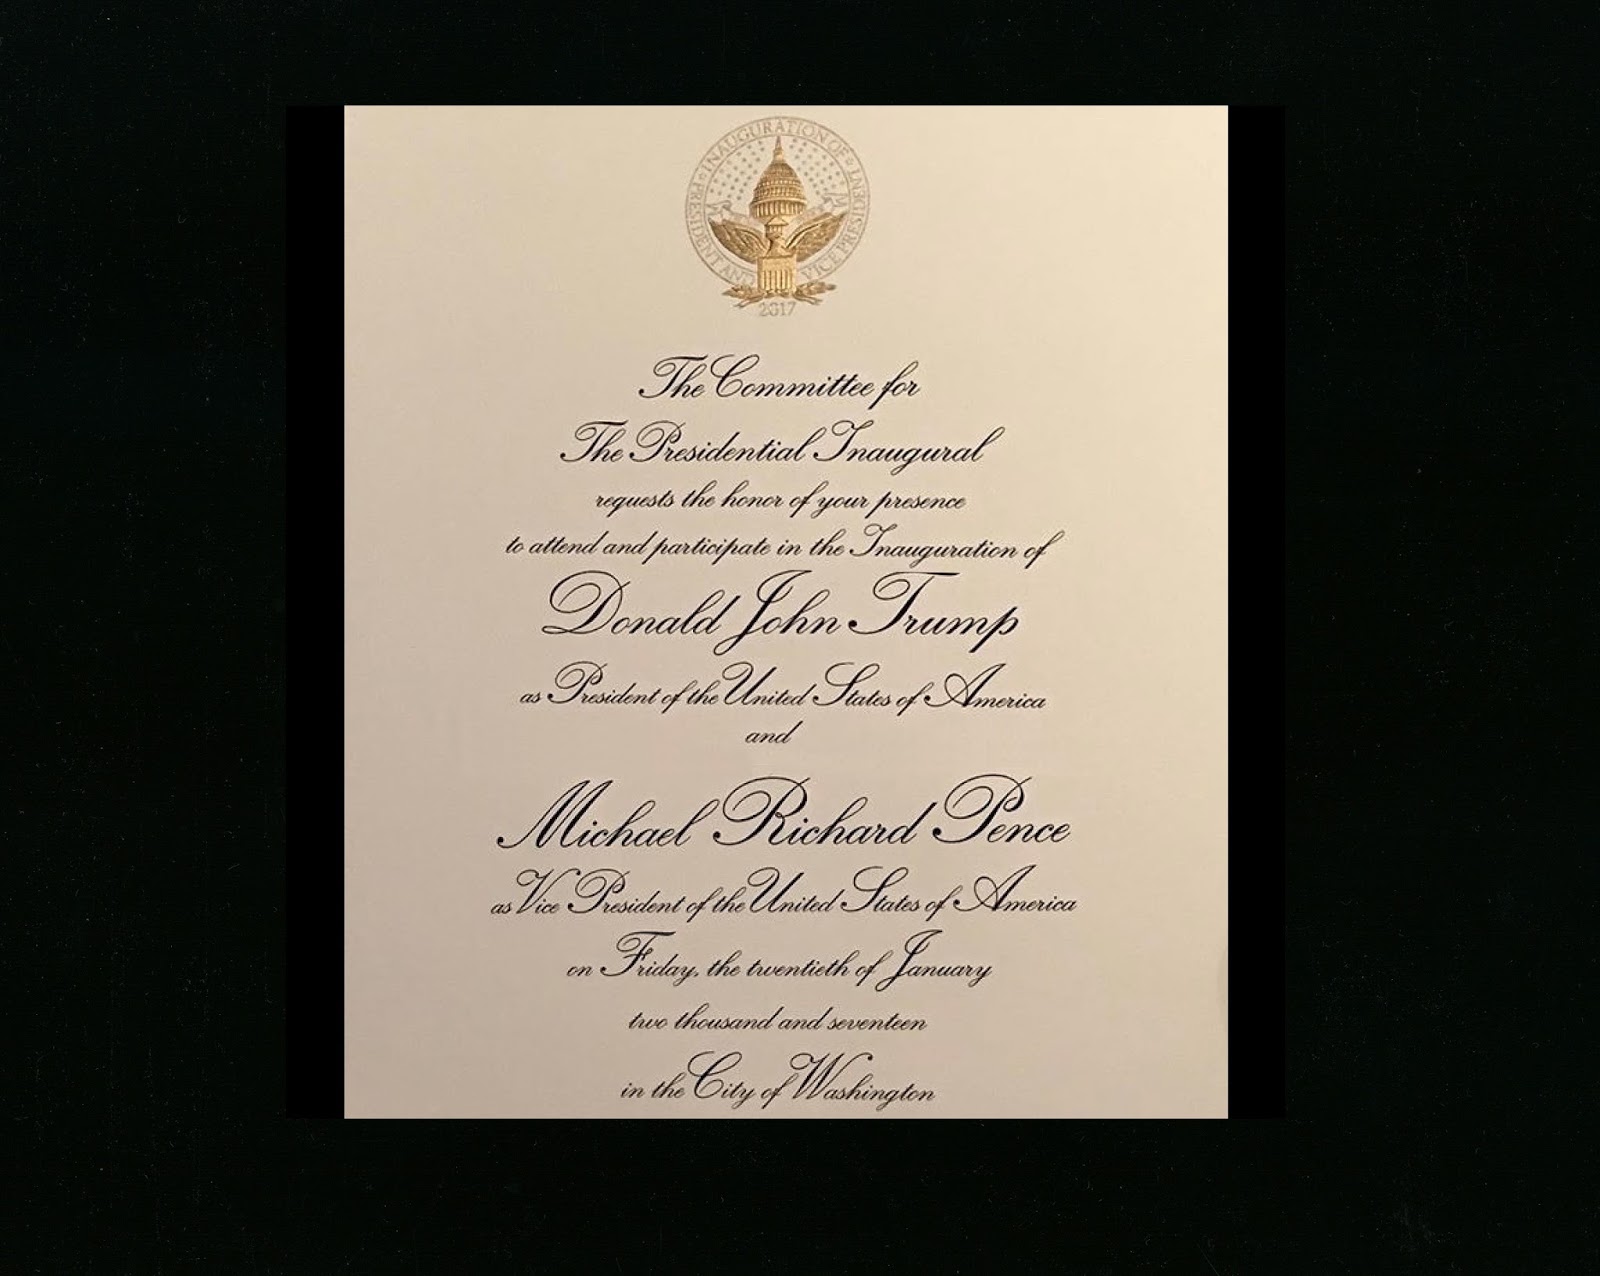 INAUGURATION OF
PRESIDENT AND
VICE PRESIDENT
2017
The Committee for
The Presidential Inaugural
requests the honor of your presence
to attend and participate in the Inauguration of
Donald John Trump
as President of the United States of America
and
Michael Richard Pence
as Vice President of the United States of America
on Friday, the twentieth of January
two thousand and seventeen
in the City of Washington